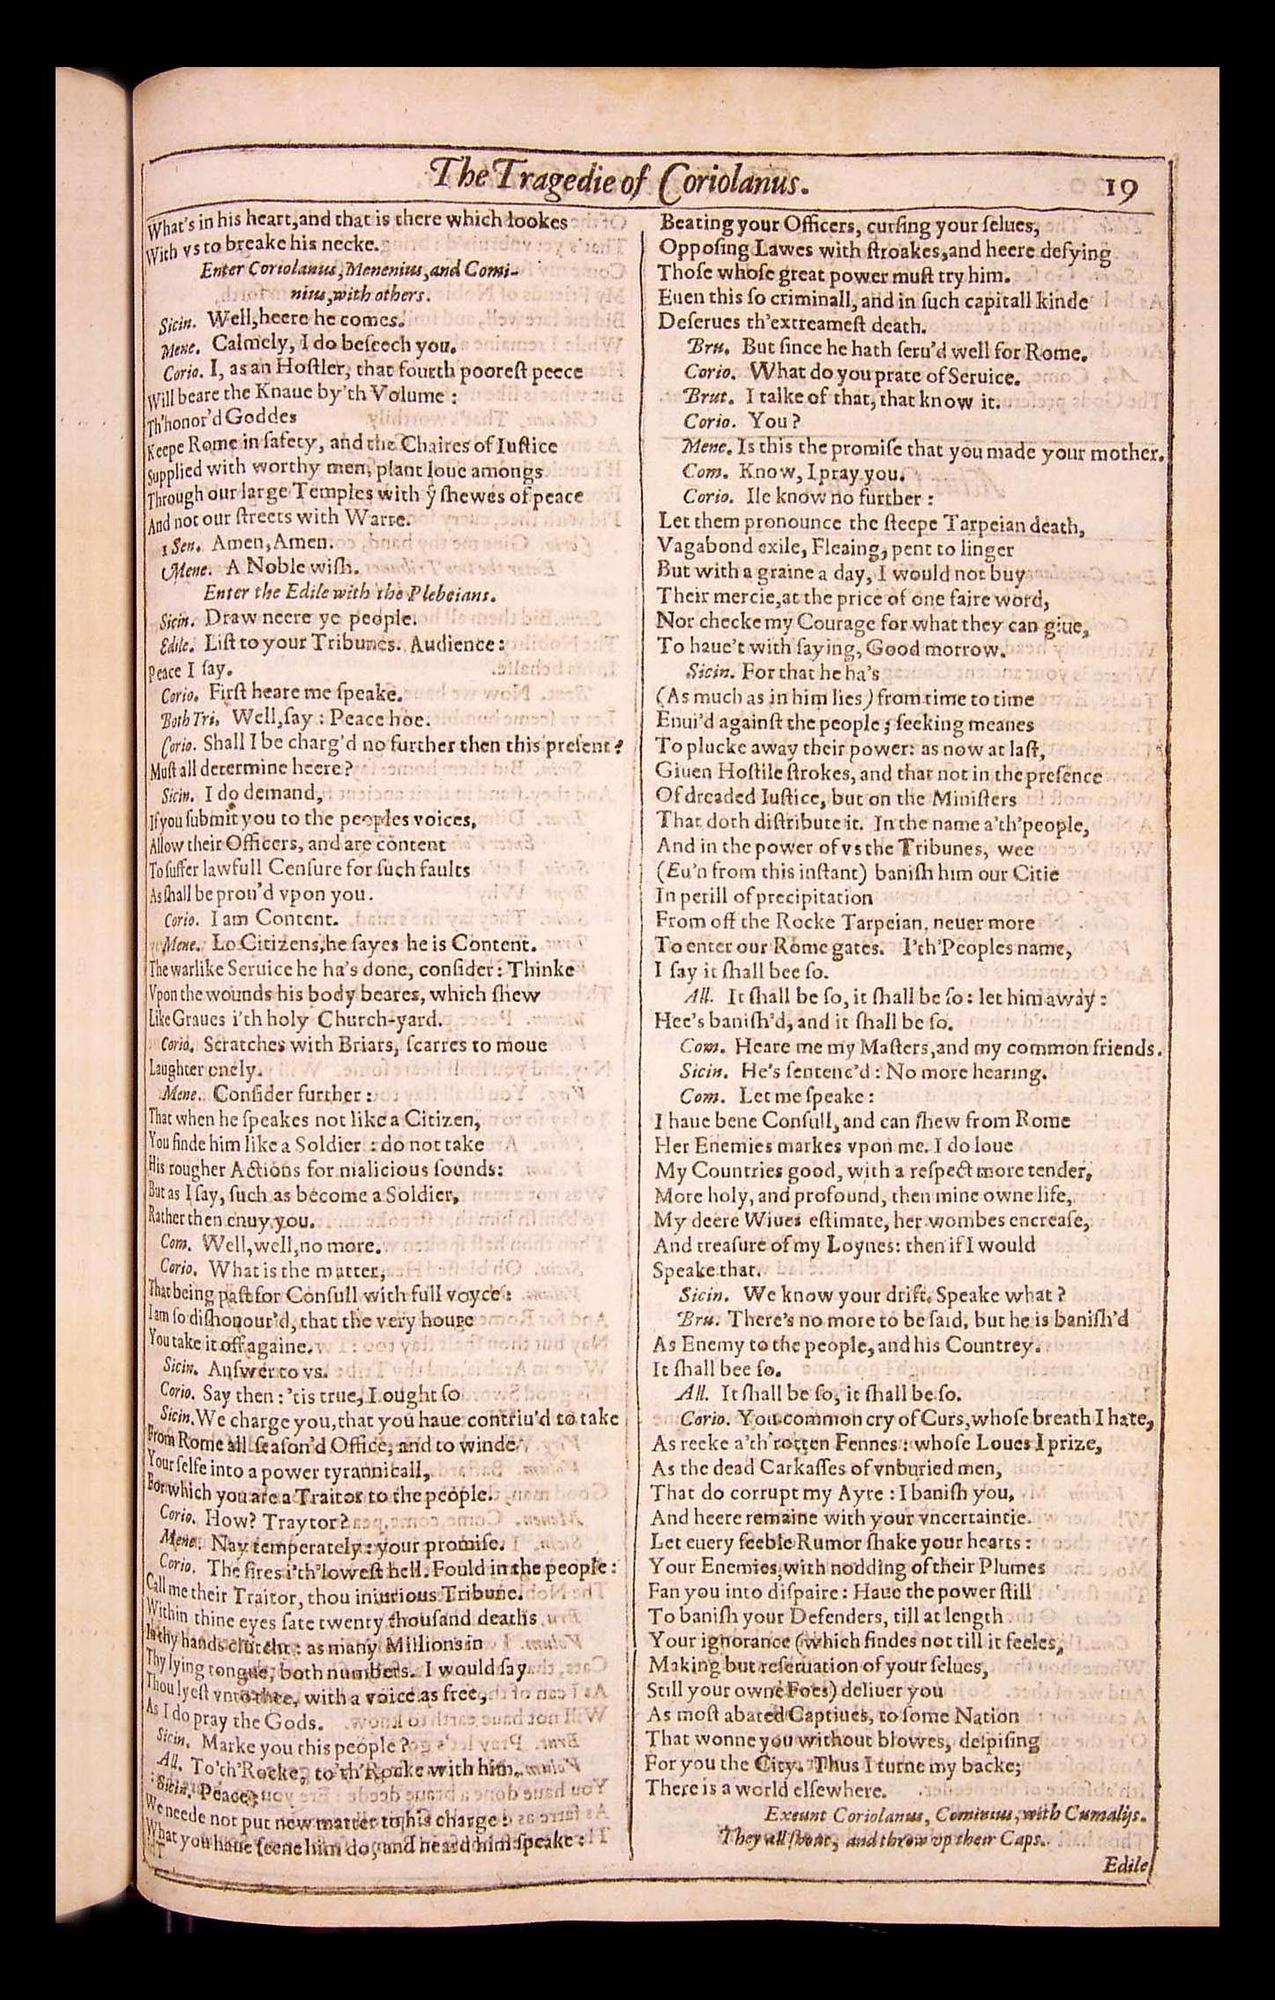 The Tragedie of Coriolanus.
19
What's in his heart,and that is there which lookes
With vs to breake his necke.
Enter Coriolanus,Menenius,and Comi-
nius,with others.
Sicin. Well,heere he comes.
Mene. Calmely, I do beseech you.
Corio. I, as an Hostler, that fourth poorest peece
Will beare the Knaue by'th Volume :
Th'honor'd Goddes
Keepe Rome in safety, and the Chaires of Iustice
Supplied with worthy men, plant loue amongs
Through our large Temples with ỹ shewes of peace
And not our streets with Warre.
1 Sen. Amen,Amen.
Mene. A Noble wish.
Enter the Edile with the Plebeians.
Sicin. Draw neere ye people.
Edile. List to your Tribunes. Audience:
Peace I say.
Corio. First heare me speake.
Both Tri. Well,say : Peace hoe.
Corio. Shall I be charg'd no further then this present?
Must all determine heere?
Sicin. I do demand,
If you submit you to the peoples voices,
Allow their Officers, and are content
To suffer lawfull Censure for such faults
As shall be prou'd vpon you.
Corio. I am Content.
Mene. Lo Citizens,he sayes he is Content.
The warlike Seruice he ha's done, consider: Thinke
Vpon the wounds his body beares, which shew
Like Graues i'th holy Church-yard.
Corio. Scratches with Briars, scarres to moue
Laughter onely.
Mene. Consider further :
That when he speakes not like a Citizen,
You finde him like a Soldier : do not take
His rougher Actions for malicious sounds:
But as I say, such as become a Soldier,
Rather then enuy you.
Com. Well,well,no more.
Corio. What is the matter,
That being past for Consull with full voyce :
I am so dishonour'd, that the very houre
You take it off againe.
Sicin. Answer to vs.
Corio. Say then : 'tis true, I ought so
Sicin. We charge you,that you haue contriu'd to take
From Rome all season'd Office, and to winde
Your selfe into a power tyrannicall,
For which you are a Traitor to the people.
Corio. How? Traytor?
Mene. Nay temperately : your promise.
Corio. The fires i'th'lowest hell. Fould in the people:
Call me their Traitor, thou iniurious Tribune.
Within thine eyes sate twenty thousand deaths
In thy hands clutcht : as many Millions in
Thy lying tongue, both numbers. I would say
Thou lyest vnto thee, with a voice as free,
As I do pray the Gods.
Sicin. Marke you this people?
All. To'th'Rocke, to th'Rocke with him.
Sicin. Peace:
We neede not put new matter to his charge :
What you haue seene him do, and heard him speake :
Beating your Officers, cursing your selues,
Opposing Lawes with stroakes,and heere defying
Those whose great power must try him.
Euen this so criminall, and in such capitall kinde
Deserues th'extreamest death.
Bru. But since he hath seru'd well for Rome.
Corio. What do you prate of Seruice.
Brut. I talke of that, that know it.
Corio. You?
Mene. Is this the promise that you made your mother.
Com. Know, I pray you.
Corio. Ile know no further :
Let them pronounce the steepe Tarpeian death,
Vagabond exile, Fleaing, pent to linger
But with a graine a day, I would not buy
Their mercie,at the price of one faire word,
Nor checke my Courage for what they can giue,
To haue't with saying, Good morrow.
Sicin. For that he ha's
(As much as in him lies) from time to time
Enui'd against the people ; seeking meanes
To plucke away their power: as now at last,
Giuen Hostile strokes, and that not in the presence
Of dreaded Iustice, but on the Ministers
That doth distribute it. In the name a'th'people,
And in the power of vs the Tribunes, wee
(Eu'n from this instant) banish him our Citie
In perill of precipitation
From off the Rocke Tarpeian, neuer more
To enter our Rome gates. I'th'Peoples name,
I say it shall bee so.
All. It shall be so, it shall be so: let him away :
Hee's banish'd, and it shall be so.
Com. Heare me my Masters,and my common friends.
Sicin. He's sentenc'd : No more hearing.
Com. Let me speake :
I haue bene Consull, and can shew from Rome
Her Enemies markes vpon me. I do loue
My Countries good, with a respect more tender,
More holy, and profound, then mine owne life,
My deere Wiues estimate, her wombes encrease,
And treasure of my Loynes: then if I would
Speake that.
Sicin. We know your drift. Speake what?
Bru. There's no more to be said, but he is banish'd
As Enemy to the people, and his Countrey.
It shall bee so.
All. It shall be so, it shall be so.
Corio. You common cry of Curs, whose breath I hate,
As reeke a'th'rotten Fennes : whose Loues I prize,
As the dead Carkasses of vnburied men,
That do corrupt my Ayre : I banish you,
And heere remaine with your vncertaintie.
Let euery feeble Rumor shake your hearts :
Your Enemies, with nodding of their Plumes
Fan you into dispaire : Haue the power still
To banish your Defenders, till at length
Your ignorance (which findes not till it feeles,
Making but reseruation of your selues,
Still your owne Foes) deliuer you
As most abated Captiues, to some Nation
That wonne you without blowes, despising
For you the City. Thus I turne my backe;
There is a world elsewhere.
Exeunt Coriolanus, Cominius, with Cumalijs.
They all shout, and throw vp their Caps.
Edile